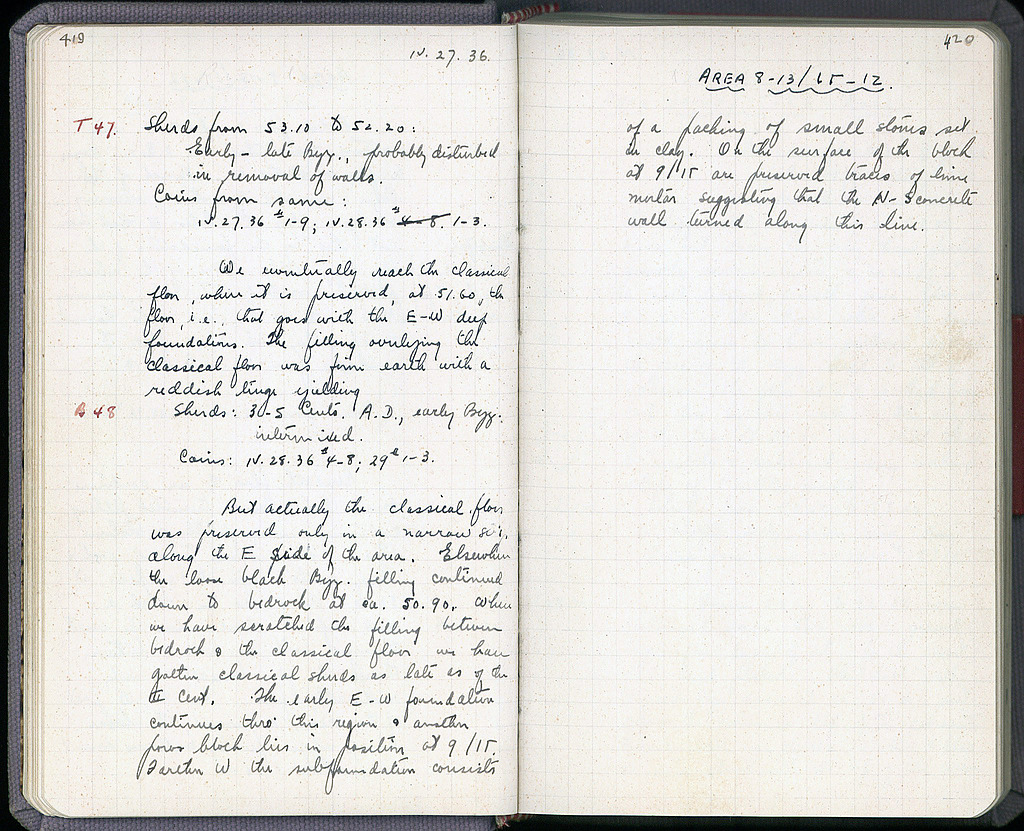 419
IV. 27. 36.
T 47. Sherds from 53.10 to 52.20:
Early - late Byz., probably disturbed
in removal of walls.
Coins from same:
IV. 27. 36 #1-9; IV. 28. 36 # 4-8. 1-3.
We eventually reach the classical
floor, where it is preserved, at 51.60, the
floor, i.e., that goes with the E-W deep
foundations. The filling overlying the
classical floor was firm earth with a
reddish tinge yielding
B 48 Sherds: 3-5 Cents. A.D., early Byz.
intermixed.
Coins: IV. 28. 36 #4-8; 29 #1-3.
But actually the classical floor
was preserved only in a narrow
along the E side of the area. Elsewhere
the loose black Byz. filling continued
down to bedrock at ca. 50.90. Where
we have scratched the filling between
bedrock & the classical floor we have
gotten classical sherds as late as of the
cent. The early E-W foundation
continues thro' this region & another
poros block lies in position at 9/ΙΕ.
Farther W the subfoundation consists
420
AREA 8-13/ΙΕ-ΙΖ.
of a packing of small stones set
in clay. On the surface of the block
at 9/ΙΕ are preserved traces of lime
mortar suggesting that the N-S concrete
wall turned along this line.